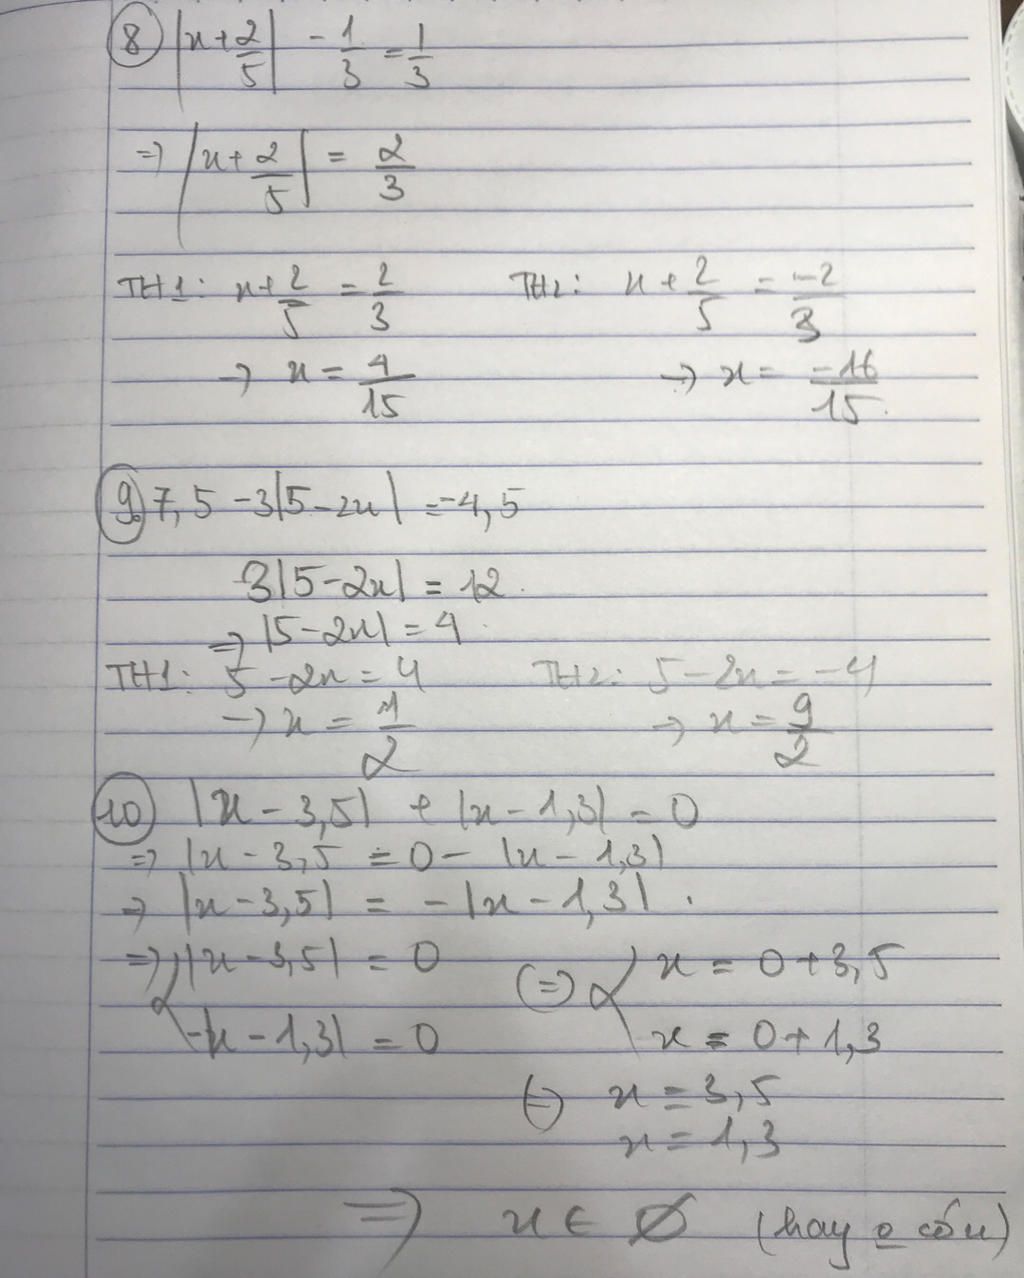 8 |x + 2/5| - 1/3 = 1/3
=> |x + 2/5| = 2/3
TH1: x + 2/5 = 2/3 TH2: x + 2/5 = -2/3
-> x = 4/15 -> x = -16/15
9. 7,5 - 3|5 - 2x| = -4,5
3|5 - 2x| = 12
=> |5 - 2x| = 4
TH1: 5 - 2x = 4 TH2: 5 - 2x = -4
-> x = 1/2 -> x = 9/2
10 |x - 3,5| + |x - 1,3| = 0
=> |x - 3,5 = 0 - |x - 1,3|
=> |x - 3,5| = - |x - 1,3|.
=> { |x - 3,5| = 0 (=> { x = 0 + 3,5
-|x - 1,3| = 0 x = 0 + 1,3
(=) x = 3,5
x = 1,3
=> x ∈ ∅ (hay o có x)